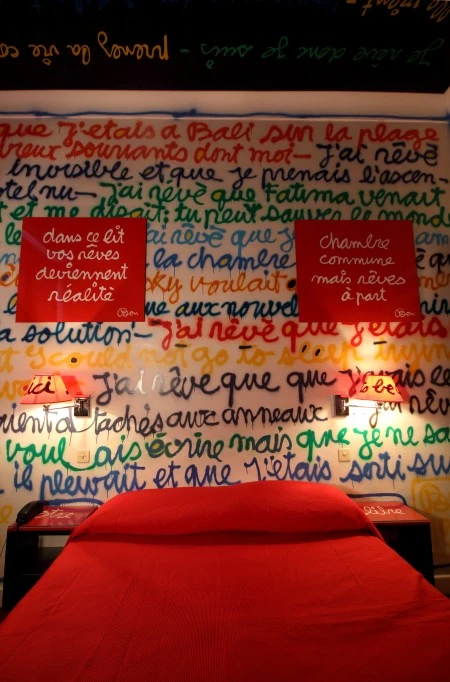 prenez la vie co
Je rêve donc je suis -
que J'étais à Bali sur la plage
reux souriants dont moi - J'ai rêvé
invisible et que je prenais l'ascen-
otel nu - J'ai rêvé que Fatima venait
t et me disait: tu peut sauver le monde
ai rêvé que J
la chambre
sky voulait
ne aux nouvel
a solution - J'ai rêvé que J'étais
I could not go to sleep
J'ai rêvé que que J'avais
attachés aux anneaux
voulais écrire mais que Je ne sa
il pleuvait et que J'étais sorti su
dans ce lit
vos rêves
deviennent
réalité
Ben
chambre
commune
mais rêves
à part
Ben
ici
être
libre